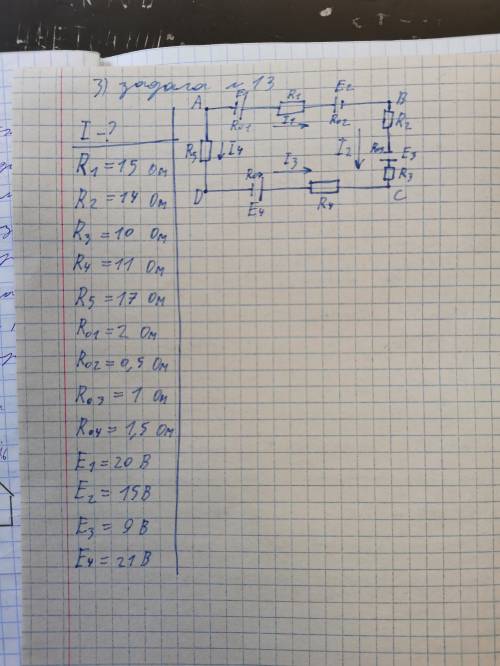 3) задача N 13
I - ?
R1 = 15 Ом
R2 = 14 Ом
R3 = 10 Ом
R4 = 11 Ом
R5 = 17 Ом
R01 = 2 Ом
R02 = 0,5 Ом
R03 = 1 Ом
R04 = 1,5 Ом
E1 = 20 В
E2 = 15 В
E3 = 9 В
E4 = 21 В
A E1 R1 E2 B
R01 I1 R02 R2
R5 I4 I3 I2 R03 E3
R04 R3
D E4 R4 C